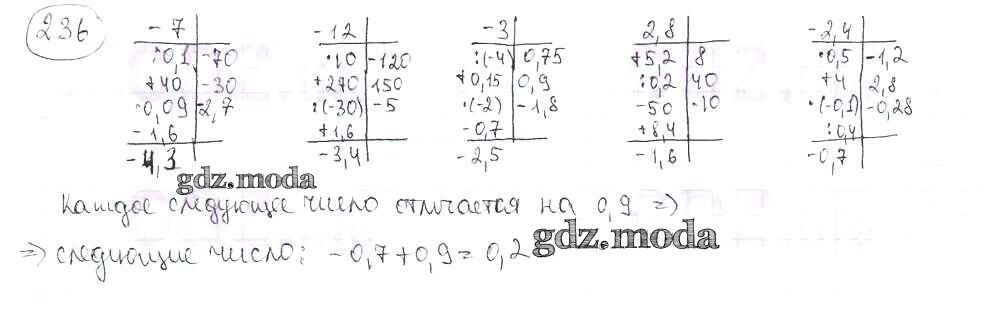 236
-7 -12 -3 2,8 -2,4
:0,1 -70 ·10 -120 :(-4) 0,75 +5,2 8 ·0,5 -1,2
+40 -30 +270 150 +0,15 0,9 :0,2 40 +4 2,8
·0,09 -2,7 :(-30) -5 ·(-2) -1,8 -50 -10 ·(-0,1) -0,28
-1,6 +1,6 -0,7 +8,4 :0,4
-4,3 -3,4 -2,5 -1,6 -0,7
gdz.moda
Каждое следующее число отличается на 0,9 =>
=> следующие число: -0,7+0,9=0,2
gdz.moda